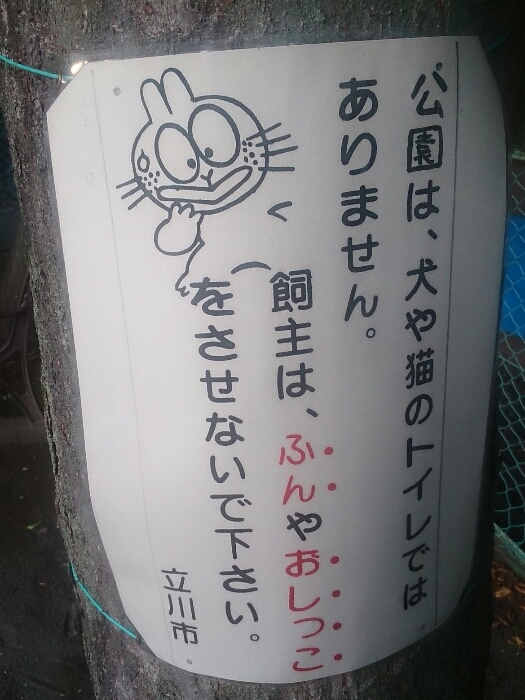 公園は、犬や猫のトイレでは
ありません。
飼主は、ふんやおしっこ
をさせないで下さい。
立川市